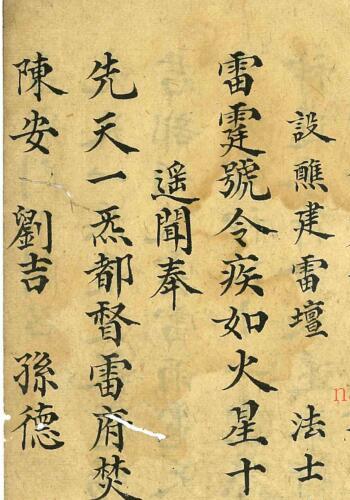 設醮建雷壇 法士
雷霆號令疾如火星十
遥聞奉
先天一炁都督雷府焚
陳安 劉吉 孫德